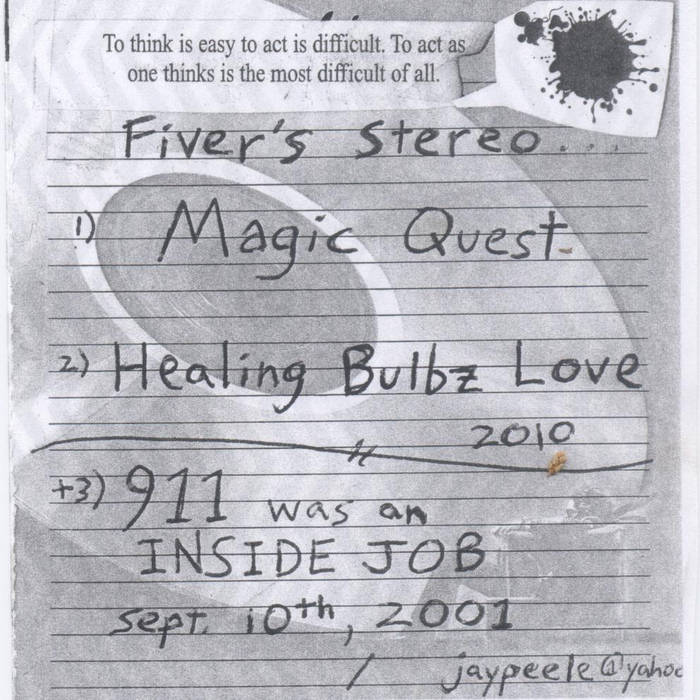 To think is easy to act is difficult. To act as
one thinks is the most difficult of all.
Fiver's Stereo...
1) Magic Quest
2) Healing Bulbz Love
2010
+3) 911 was an
INSIDE JOB
sept. 10th, 2001
/ jaypeele@yahoo